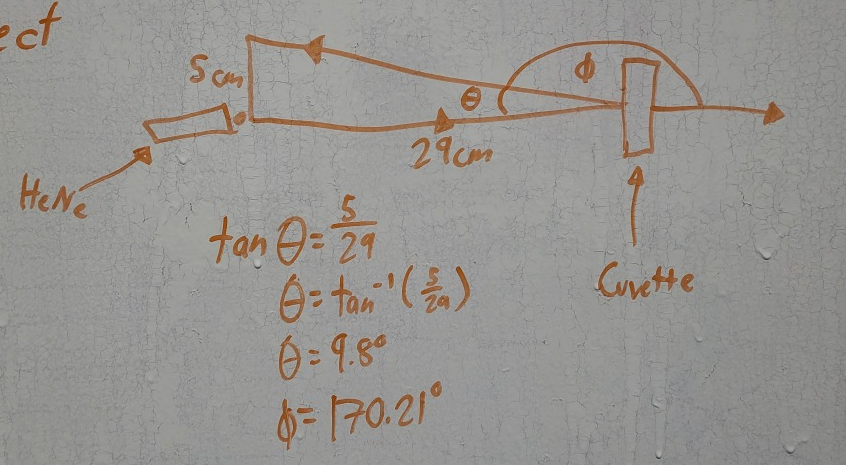 ect
5cm
ϕ
θ
29cm
HeNe
Cuvette
tan θ = 5/29
θ = tan⁻¹(5/29)
θ = 9.8°
ϕ = 170.21°